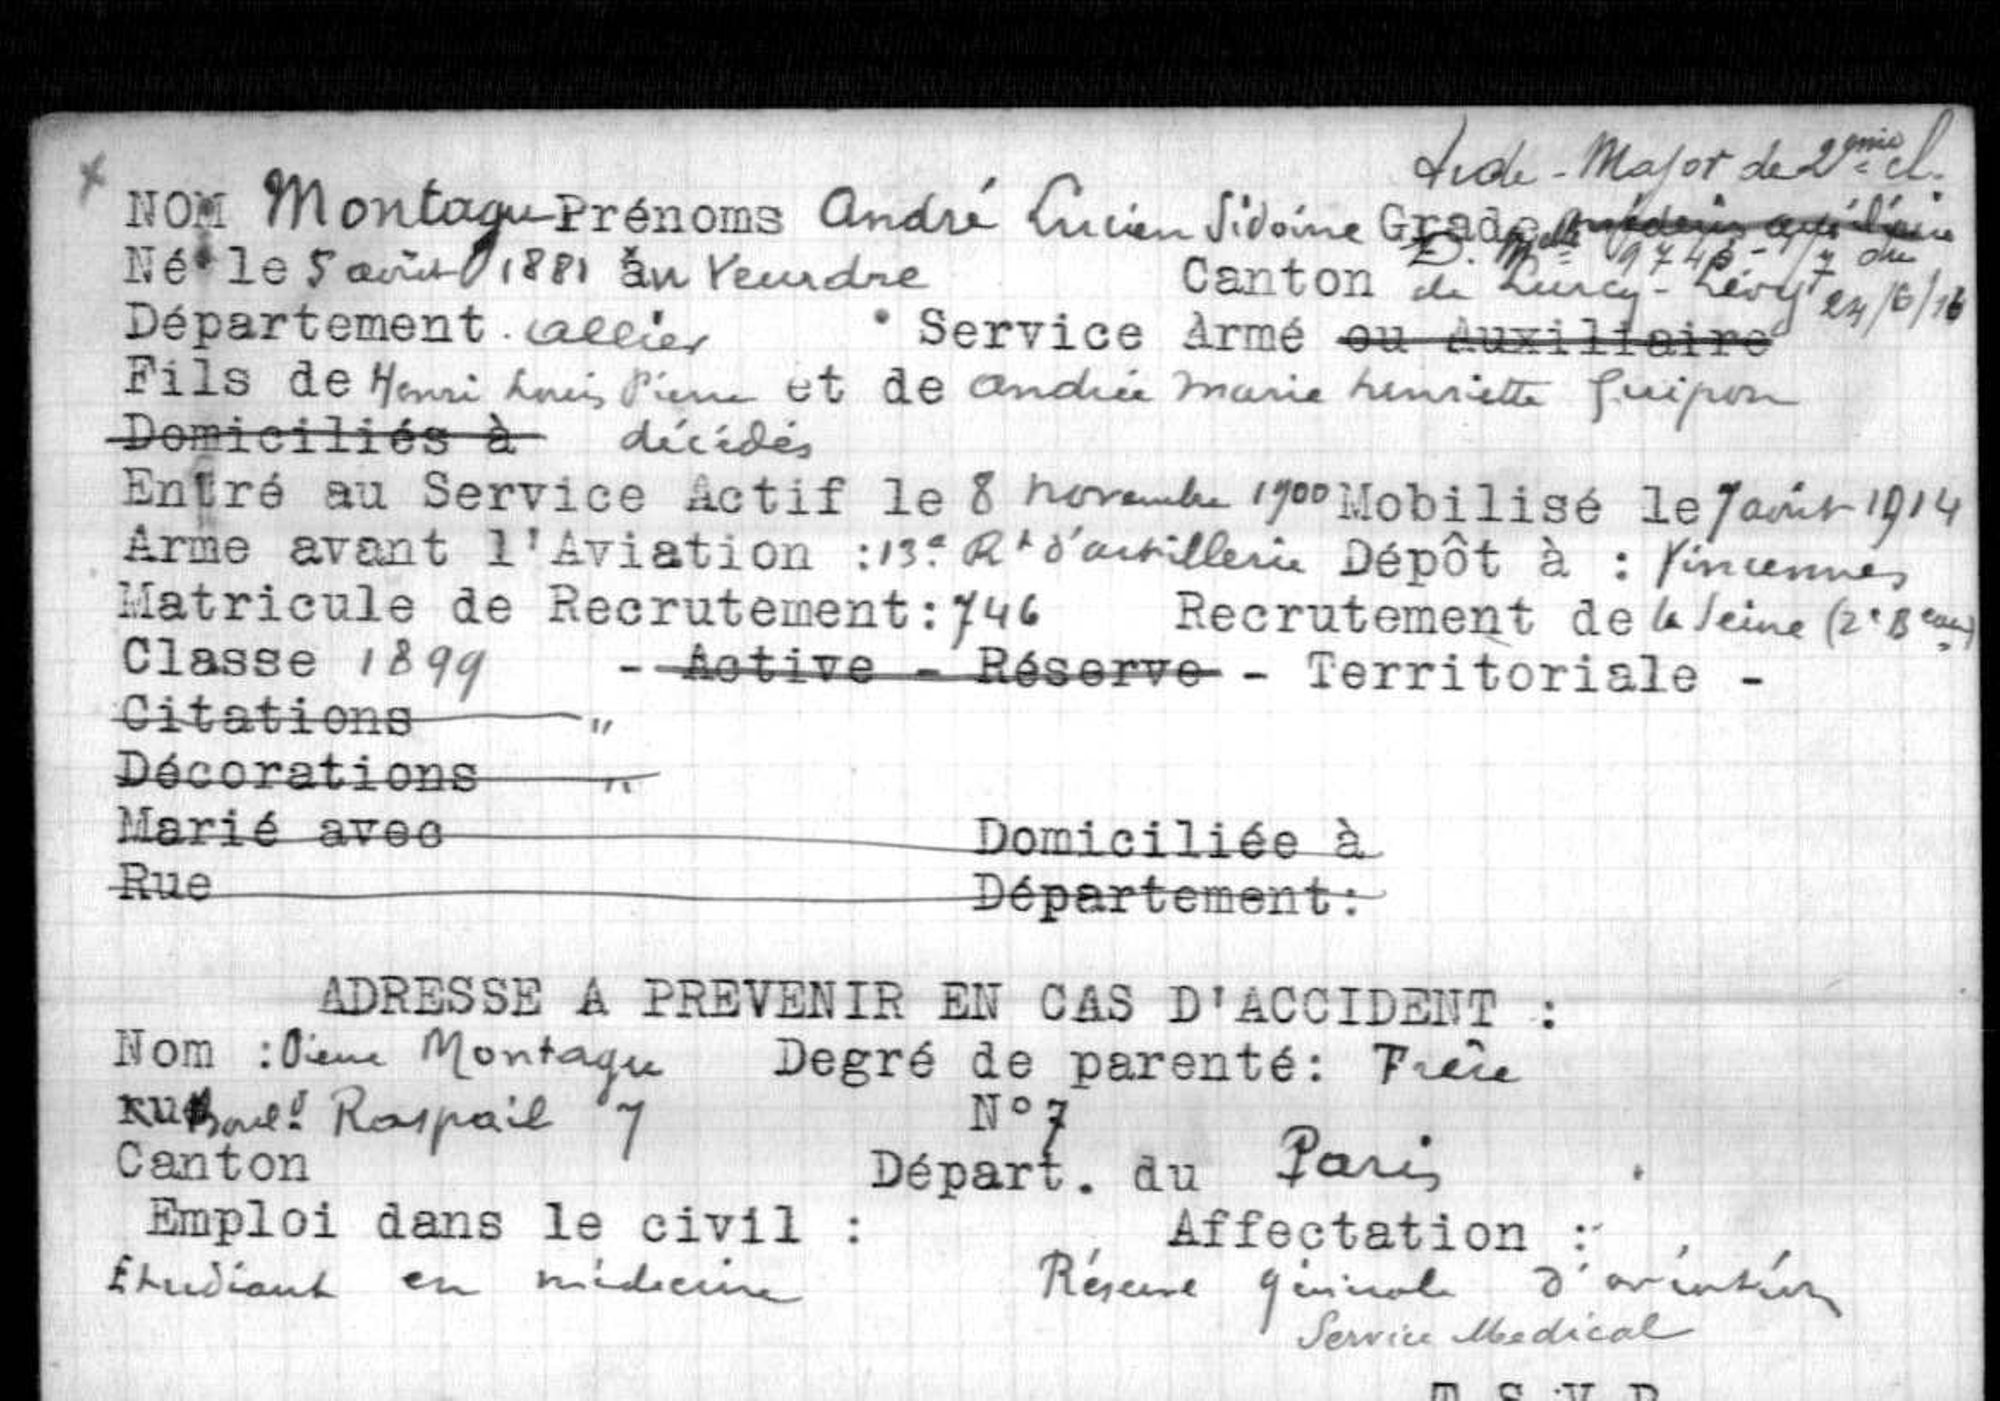 Aide-Major de 2ème cl.
NOM Montagu Prénoms André Lucien Sidoine Grade médecin auxiliaire
D. Mlle 974 - /7 du
Né le 5 août 1881 au Veurdre Canton de Lurcy-Lévy 24/6/16
Département Allier Service Armé ou Auxiliaire
Fils de Henri Louis Pierre et de Andrée Marie henriette Guipon
Domiciliés à décédés
Entré au Service Actif le 8 novembre 1900 Mobilisé le 7 août 1914
Arme avant l'Aviation : 13e Rt d'artillerie Dépôt à : Vincennes
Matricule de Recrutement: 746 Recrutement de la Seine (2e Beau)
Classe 1899 - Active - Réserve - Territoriale -
Citations "
Décorations "
Marié avec Domiciliée à
Rue Département:
ADRESSE A PREVENIR EN CAS D'ACCIDENT :
Nom : Pierre Montagu Degré de parenté: Frère
rue Boul.d Raspail 7 N° 7
Canton Départ. du Paris
Emploi dans le civil : Affectation :
Étudiant en médecine Réserve générale d'aviation
Service Medical
T S V P